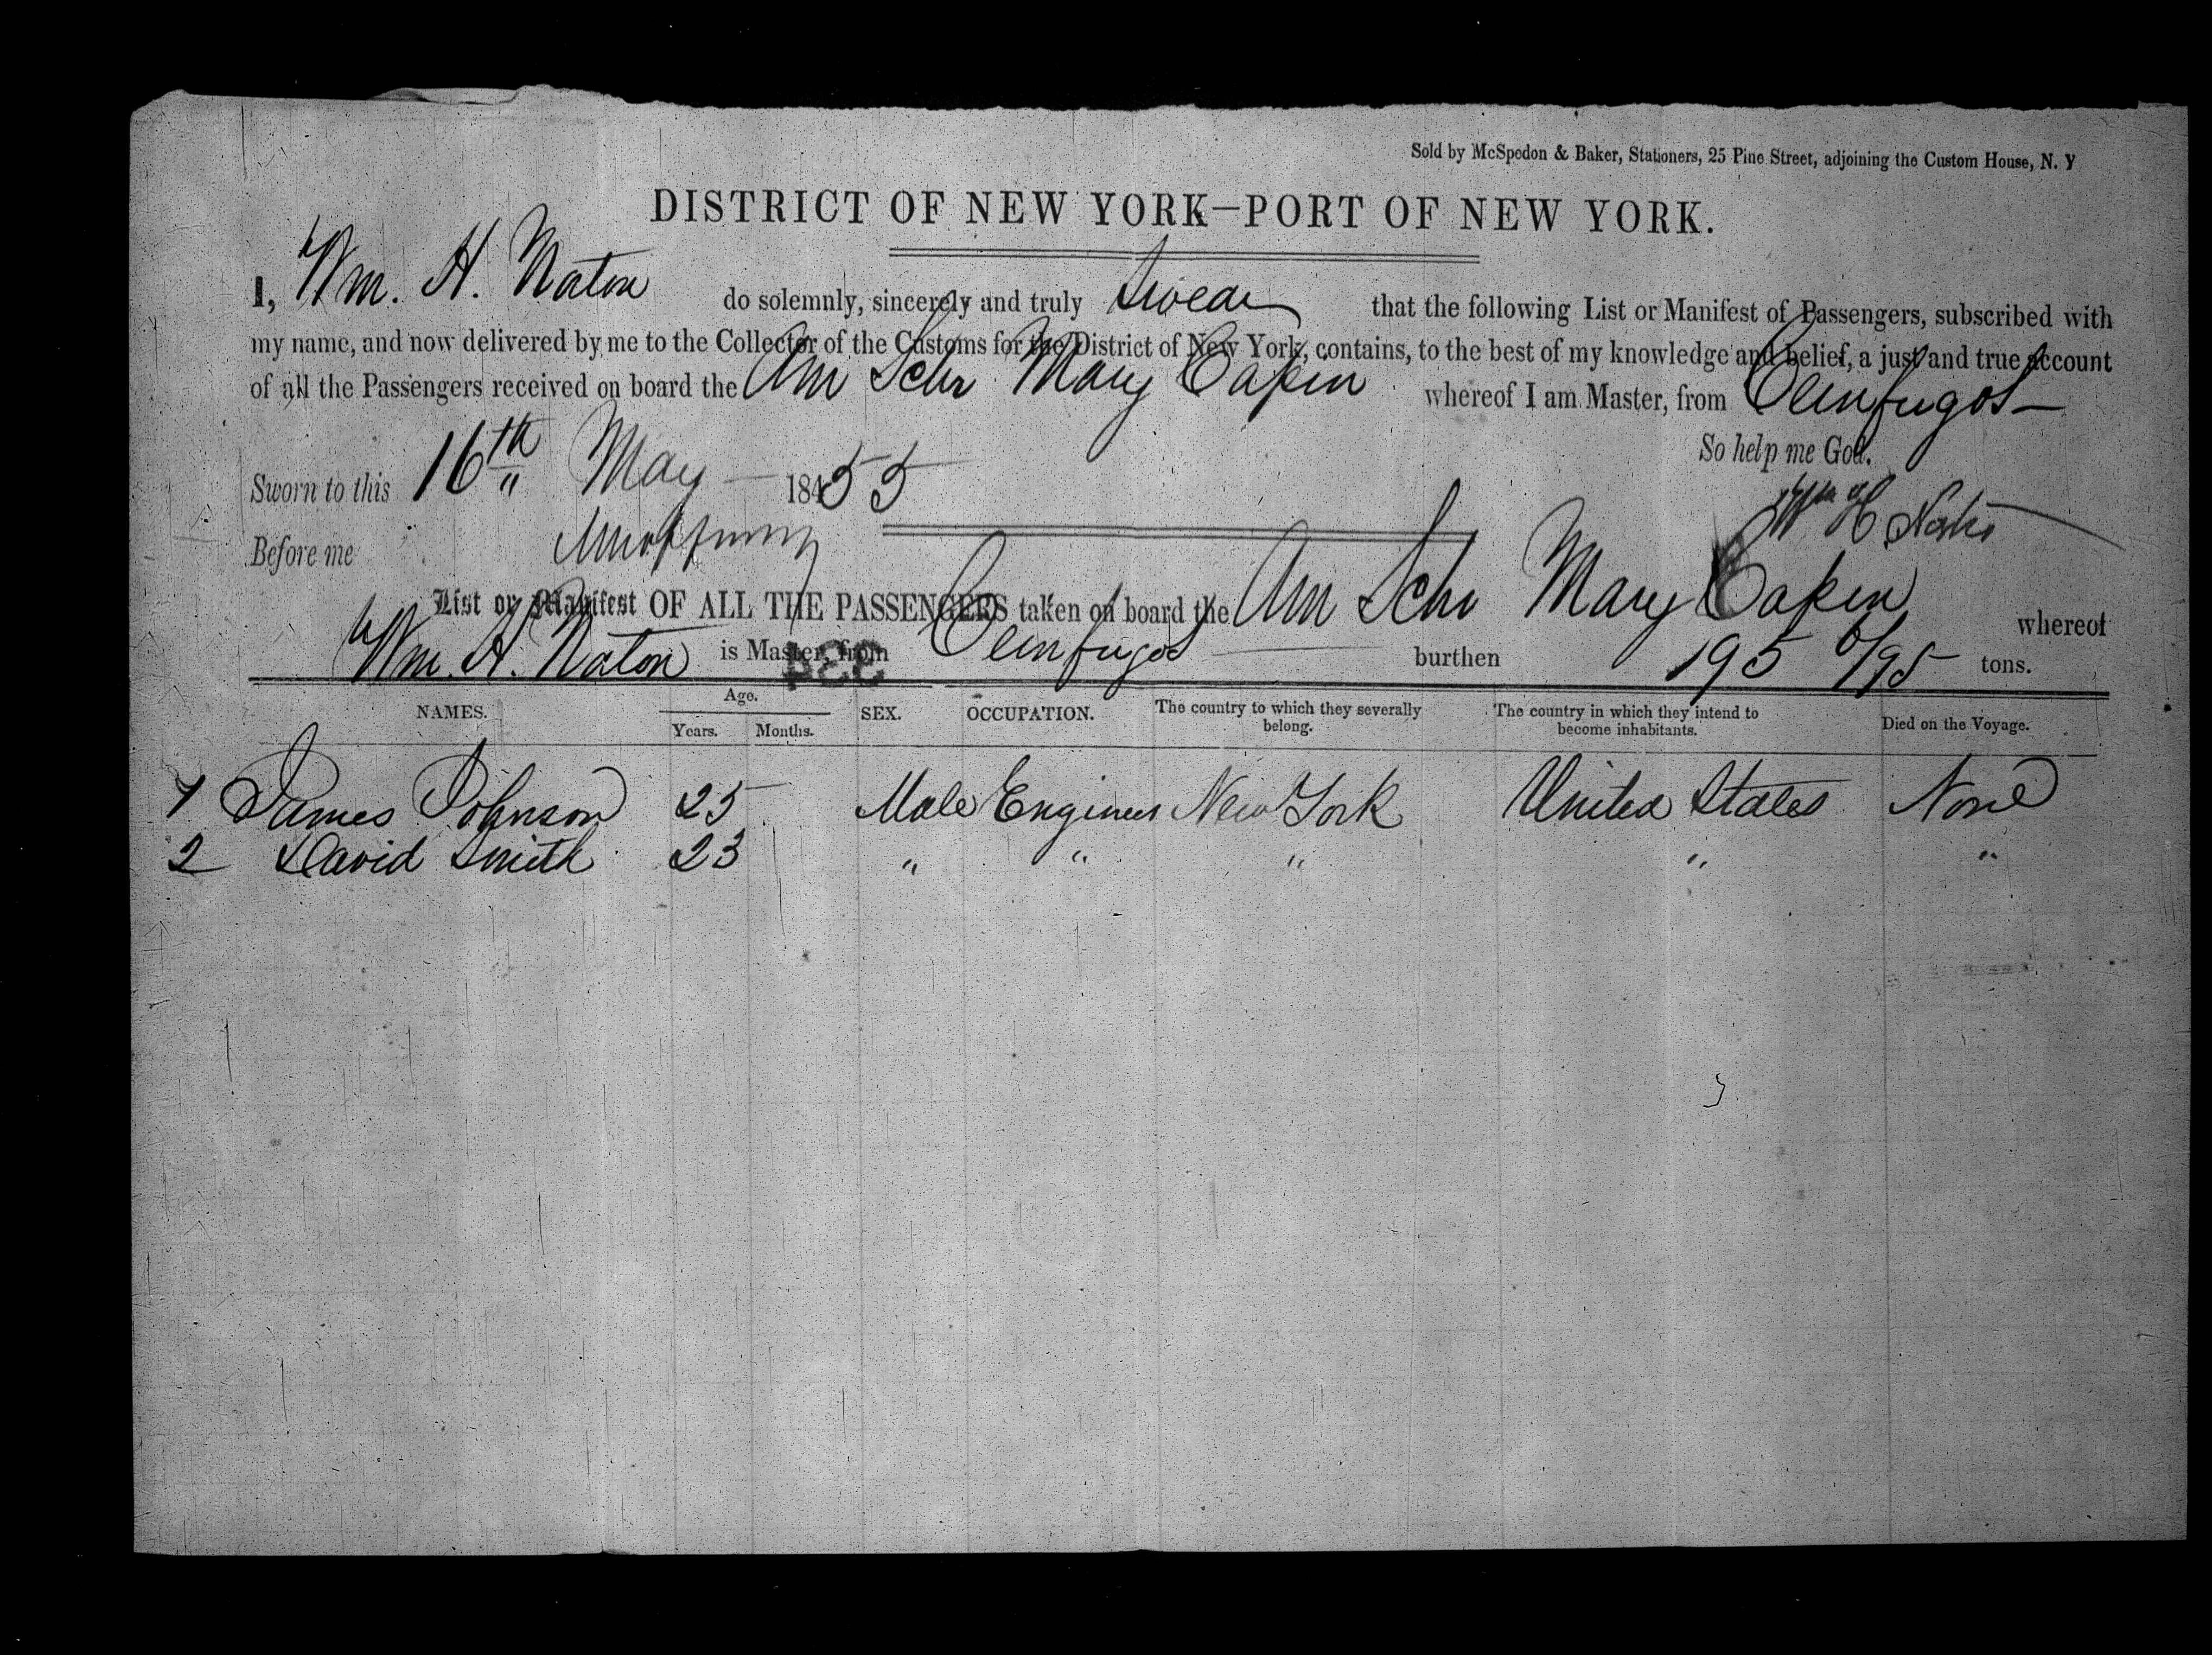 Sold by McSpedon & Baker, Stationers, 25 Pine Street, adjoining the Custom House, N. Y
DISTRICT OF NEW YORK—PORT OF NEW YORK.
I, Wm. H. Naton do solemnly, sincerely and truly Swear that the following List or Manifest of Passengers, subscribed with
my name, and now delivered by me to the Collector of the Customs for the District of New York, contains, to the best of my knowledge and belief, a just and true account
of all the Passengers received on board the Am Schr Mary Eaken whereof I am Master, from Cienfugos
So help me God.
Sworn to this 16th May 1855
Wm H
Before me
List or Manifest OF ALL THE PASSENGERS taken on board the Am Schr Mary Eaken whereof
Wm. H. Naton is Master, from Cienfugos burthen 195 6/95 tons.
334
NAMES. Age. Years. Months. SEX. OCCUPATION. The country to which they severally belong. The country in which they intend to become inhabitants. Died on the Voyage.
1 James Johnson 25 Male Engineer New York United States None
2 David Smith 23 " " " " "